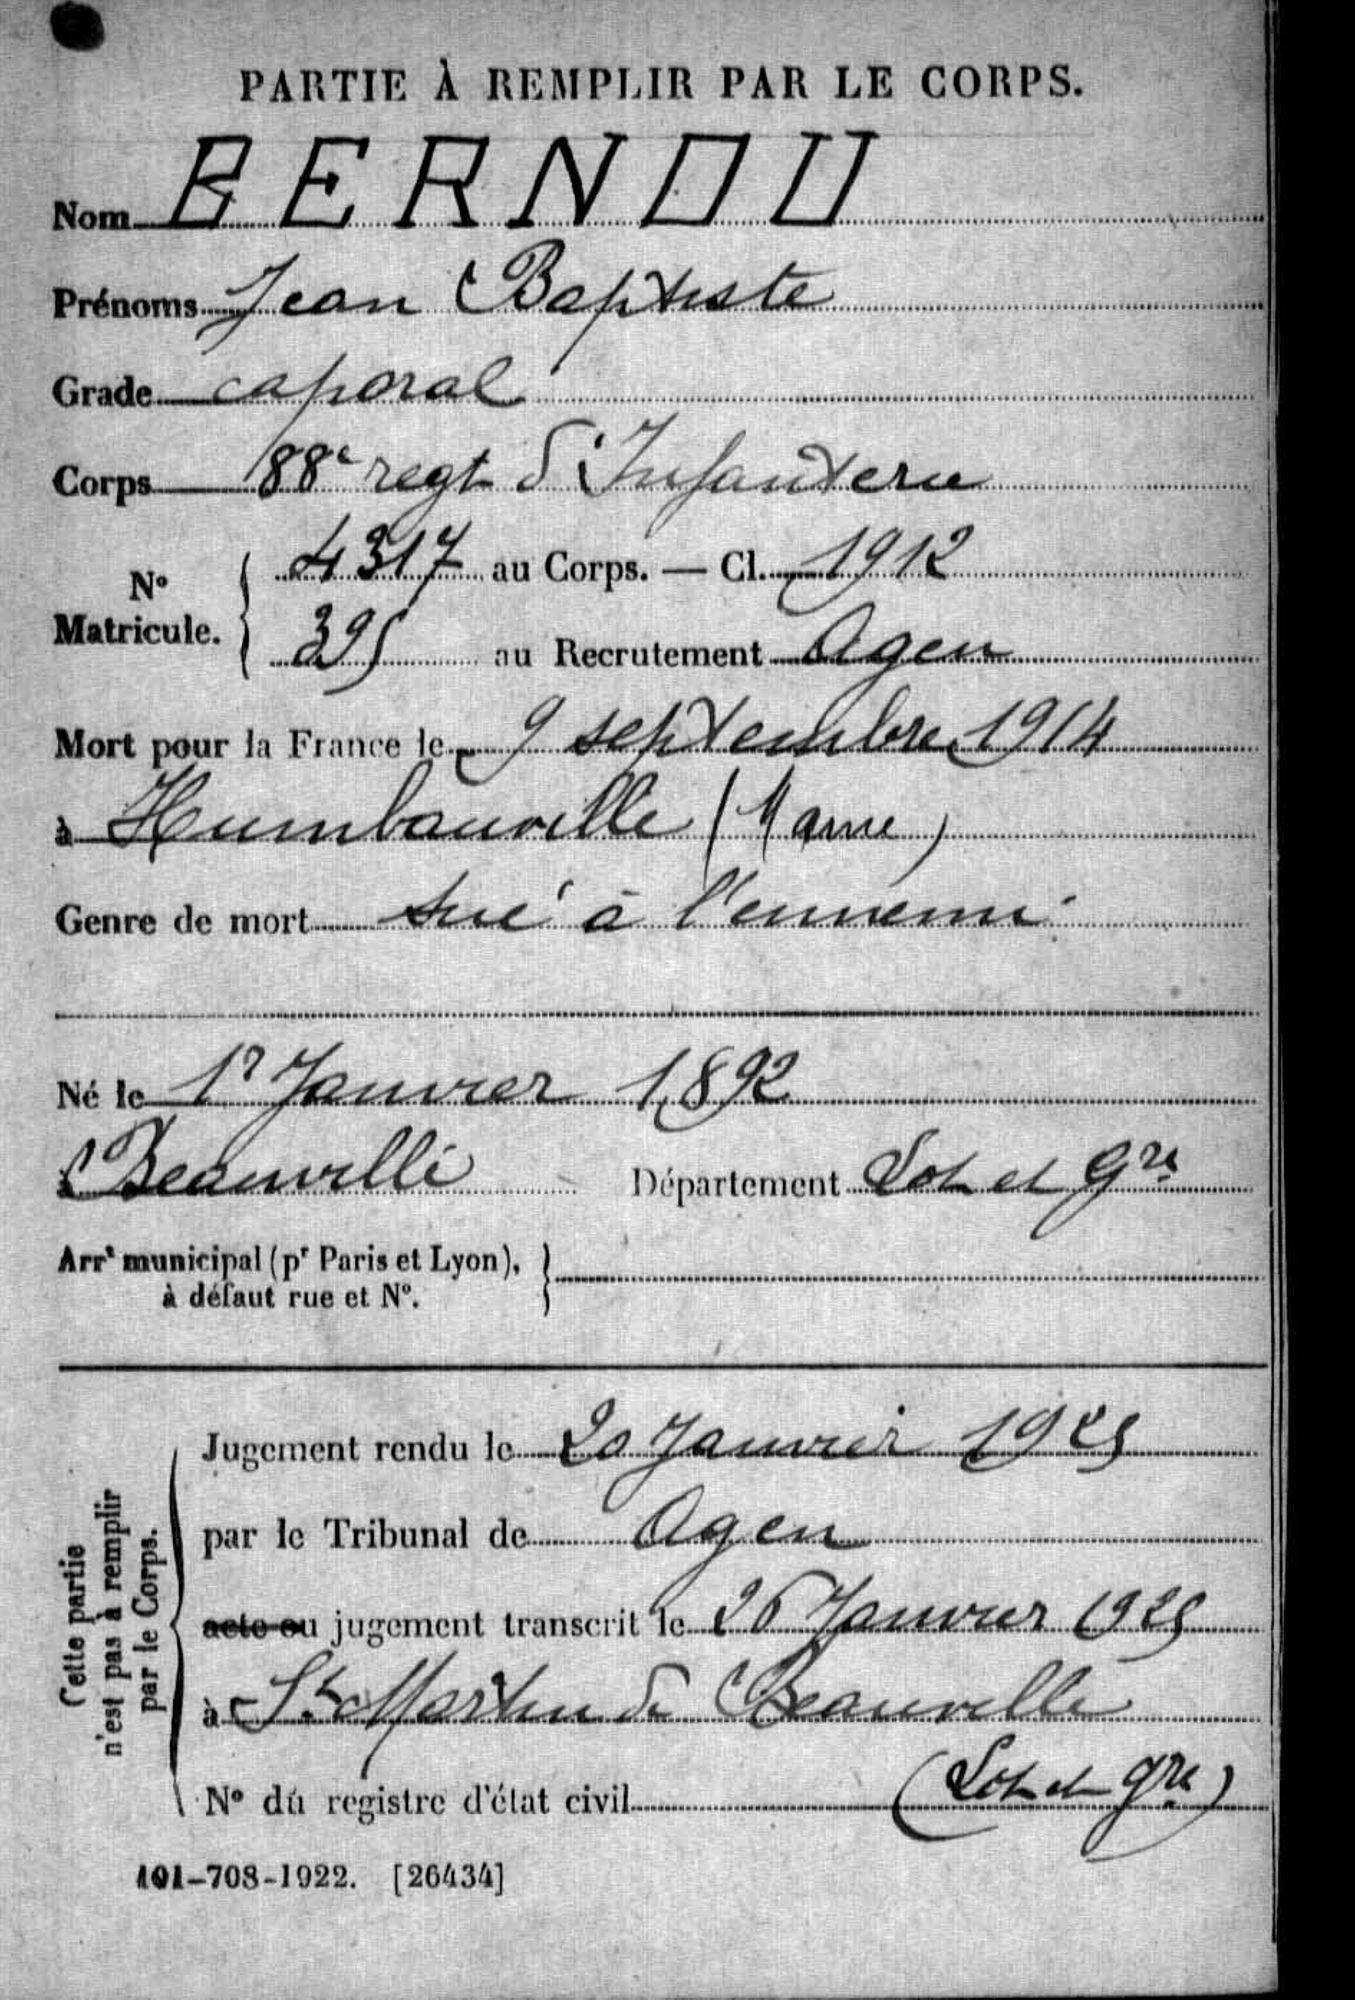 PARTIE À REMPLIR PAR LE CORPS.
Nom BERNOU
Prénoms Jean Baptiste
Grade caporal
Corps 88e regt d'Infanterie
N° Matricule. { 4317 au Corps. — Cl. 1912
395 au Recrutement Agen
Mort pour la France le 9 septembre 1914
à Humbauville (Marne)
Genre de mort tué à l'ennemi
Né le 1r Janvier 1892
à Beauville Département Lot et Gne
Arrt municipal (pr Paris et Lyon), }
à défaut rue et N°.
Cette partie n'est pas à remplir par le Corps.
Jugement rendu le 20 Janvier 1925
par le Tribunal de Agen
acte ou jugement transcrit le 26 Janvier 1925
à St Martin de Beauville
(Lot et Gne)
N° du registre d'état civil
101-708-1922. [26434]